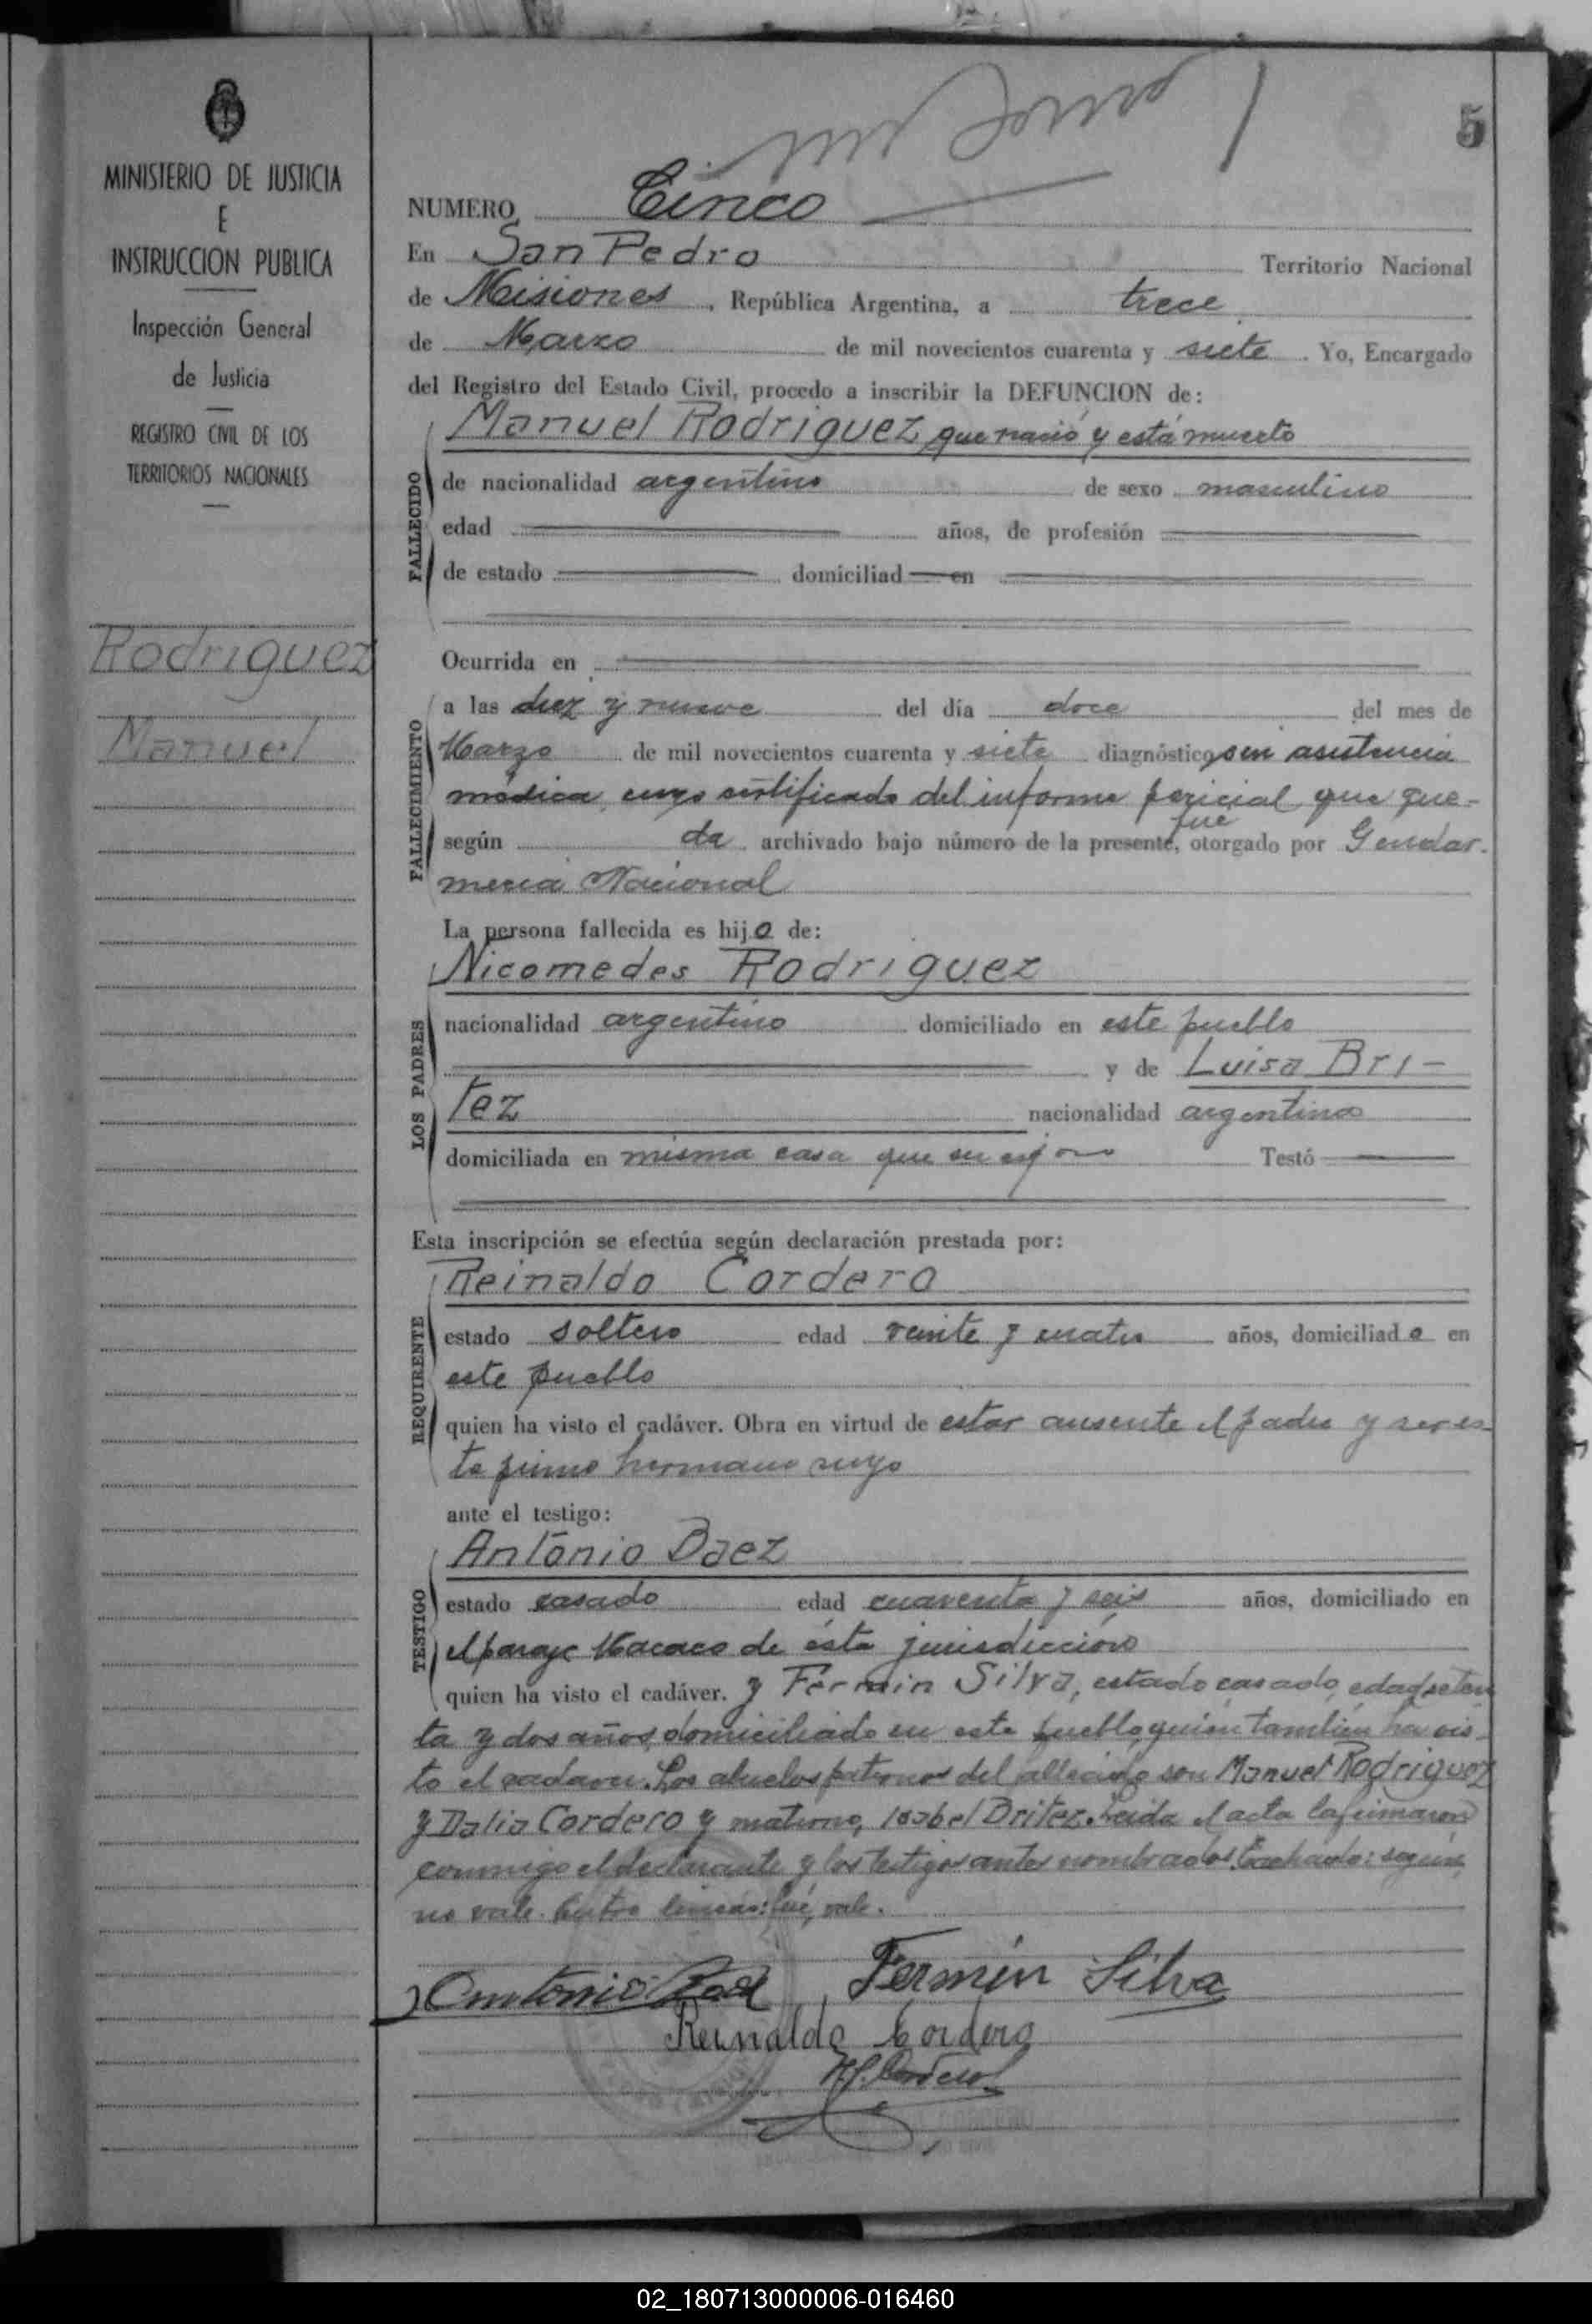 5
MINISTERIO DE JUSTICIA
E
INSTRUCCION PUBLICA
Inspección General
de Justicia
REGISTRO CIVIL DE LOS
TERRITORIOS NACIONALES
Rodriguez
Manuel
NUMERO Cinco
En San Pedro Territorio Nacional
de Misiones, República Argentina, a trece
de Marzo de mil novecientos cuarenta y siete. Yo, Encargado
del Registro del Estado Civil, procedo a inscribir la DEFUNCION de:
Manuel Rodriguez que nació y está muerto
FALLECIDO
de nacionalidad argentino de sexo masculino
edad años, de profesión
de estado domiciliad en
Ocurrida en
FALLECIMIENTO
a las diez y nueve del día doce del mes de
Marzo de mil novecientos cuarenta y siete diagnóstico sin asistencia
médica, cuyo certificado del informe pericial que que-
fué
según da archivado bajo número de la presente, otorgado por Gendar-
mería Nacional
La persona fallecida es hijo de:
Nicomedes Rodriguez
LOS PADRES
nacionalidad argentino domiciliado en este pueblo
y de Luisa Bri-
tez nacionalidad argentina
domiciliada en misma casa que su Testó
Esta inscripción se efectúa según declaración prestada por:
Reinaldo Cordero
REQUIRENTE
estado soltero edad veinte y cuatro años, domiciliado en
este pueblo
quien ha visto el cadáver. Obra en virtud de estar ausente el padre y ser es-
te primo hermano suyo
ante el testigo:
Antonio Baez
TESTIGO
estado casado edad cuarenta y seis años, domiciliado en
el paraje Macaco de ésta jurisdicción
quien ha visto el cadáver. y Fermin Silva, estado casado, edad seten
ta y dos años, domiciliado en este pueblo, quien también ha vis-
to el cadaver. Los abuelos paternos del fallecido son Manuel Rodriguez
y Dalia Cordero y materno, Isabel Britez. Leida el acta la firmaron
conmigo el declarante y los testigos antes nombrados. Tachado: según,
no vale. Entre lineas: fué, vale.
Antonio Baez Fermin Silva
Reinaldo Cordero
Cordero
02_180713000006-016460